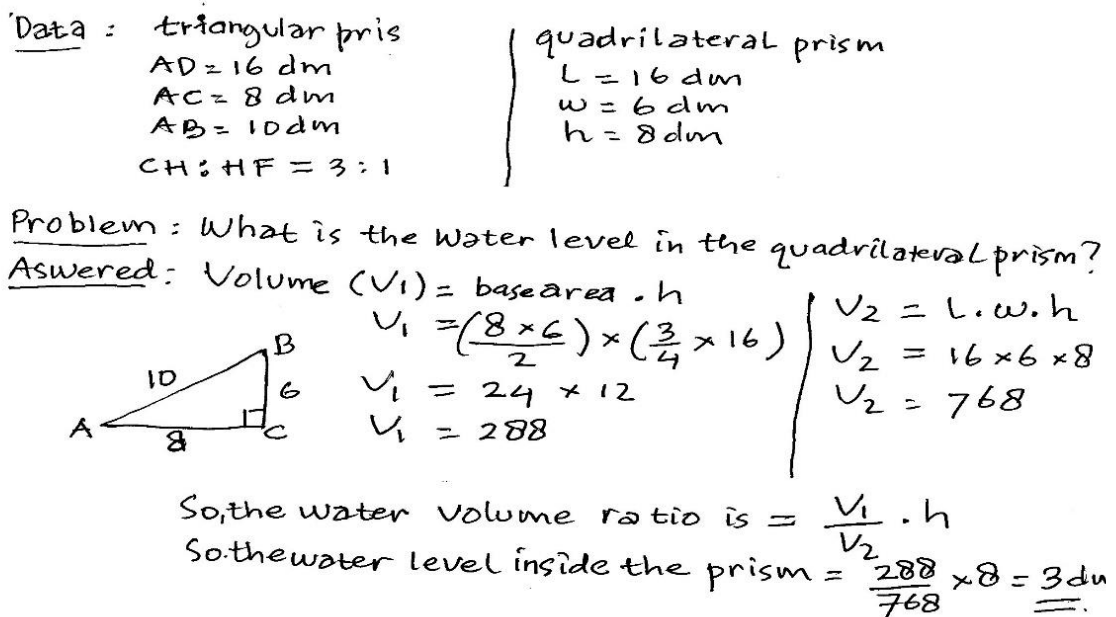 Data : triangular pris
AD = 16 dm
AC = 8 dm
AB = 10 dm
CH : HF = 3 : 1
quadrilateral prism
L = 16 dm
w = 6 dm
h = 8 dm
Problem : What is the water level in the quadrilateral prism?
Aswered : Volume (V₁) = base area . h
V₁ = (8 × 6 / 2) × (3/4 × 16)
V₁ = 24 × 12
V₁ = 288
B
10
6
A
8
C
V₂ = L . w . h
V₂ = 16 × 6 × 8
V₂ = 768
So, the water volume ratio is = V₁/V₂ . h
So the water level inside the prism = 288/768 × 8 = 3 dm